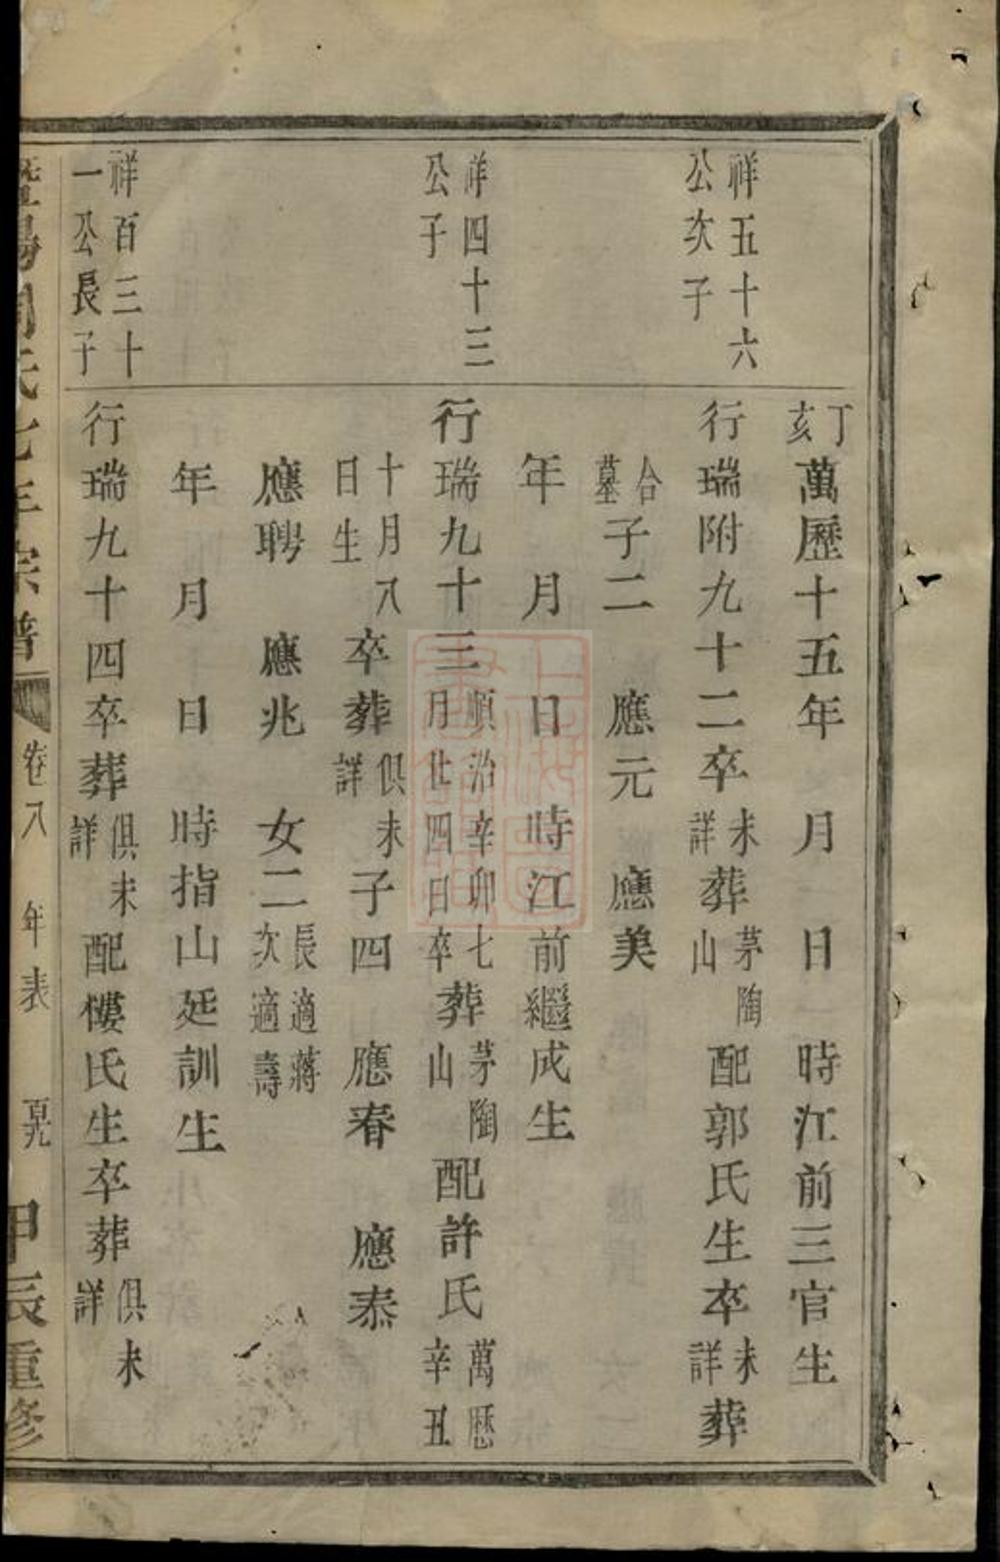 丁亥萬歷十五年　月　日　時江前三官生
祥五十六
公次子
行瑞附九十二卒未詳葬茅陶山配郭氏生卒未詳葬
合墓子二　應元　應美
年　月　日　時江前繼成生
祥四十三
公子
行瑞九十三順治辛卯七月廿四日卒葬茅陶山配許氏萬歷辛丑
十月八日生卒葬俱未詳子四　應春　應泰
應聘　應兆　女二長適蔣次適壽
年　月　日　時指山廷訓生
祥百三十
一公長子
行瑞九十四卒葬俱未詳配樓氏生卒葬俱未詳
暨陽周氏宗譜　卷八　年表　甲辰重修